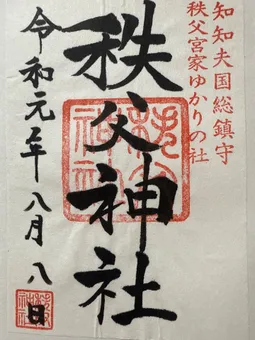 知知夫国総鎮守
秩父宮家ゆかりの社
秩父神社
令和元年八月八日